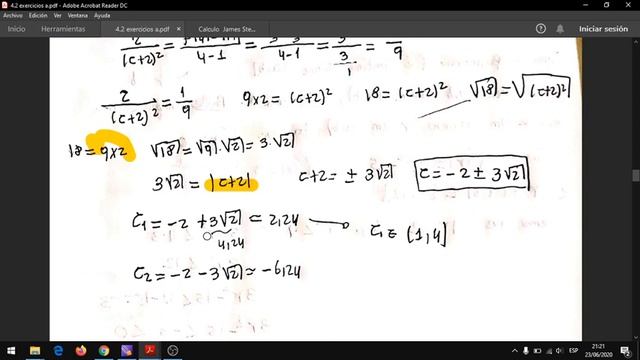 4.2 exercicios a.pdf - Adobe Acrobat Reader DC
Archivo Edición Ver Ventana Ayuda
Inicio Herramientas 4.2 exercicios a.pdf × Calculo James Ste... Iniciar sesión
2/(c+2)² = 4-1 = 4-1 = 3/1 9
2/(c+2)² = 1/9 9×2 = (c+2)² 18 = (c+2)² √18 = √(c+2)²
18 = 9×2 √18 = √9 · √2 = 3·√2
3√2 = |c+2| c+2 = ± 3√2 c = -2 ± 3√2
c₁ = -2 + 3√2 ≃ 2,24 c₁ ∈ (1,4)
4,24
c₂ = -2 - 3√2 ≃ -6,24
ESP 21:21
23/06/2020